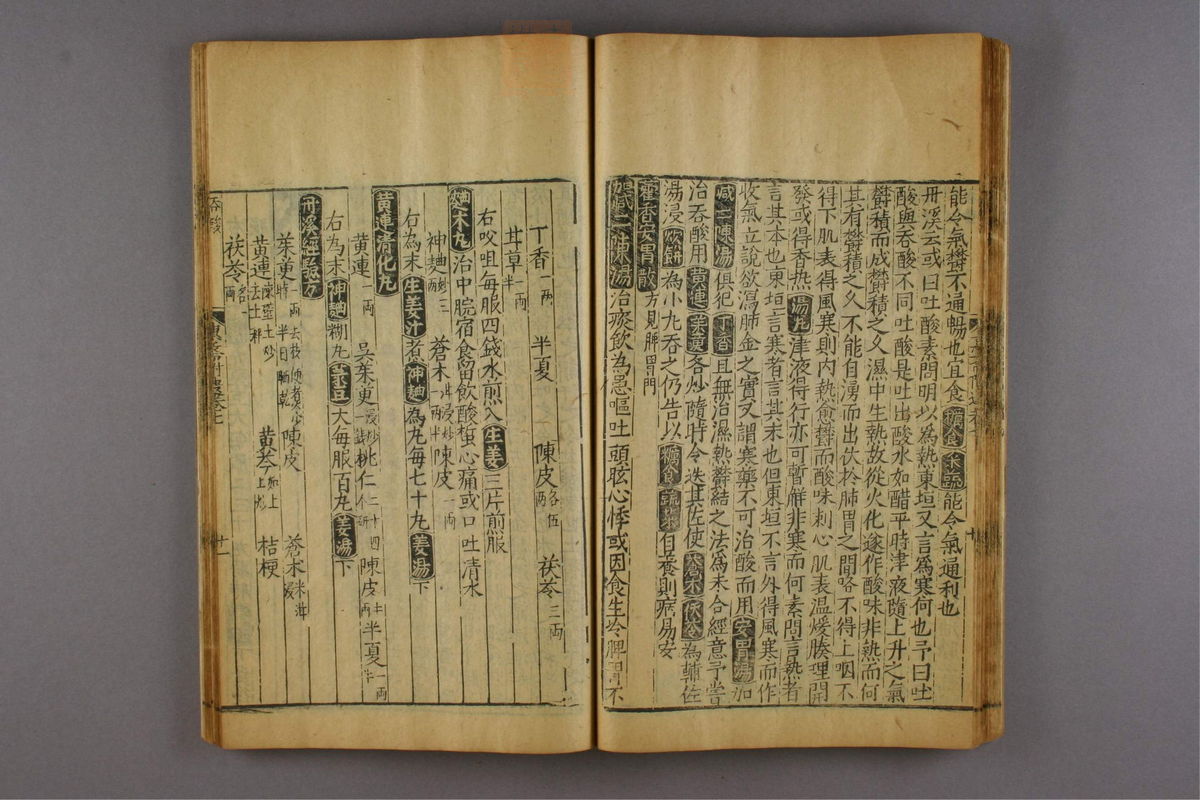 能令氣欝不通暢也宜食糲食菜蔬能令氣通利也
丹溪云或曰吐酸素問明以爲熱東垣又言爲寒何也予曰吐
酸與吞酸不同吐酸是吐出酸水如醋平時津液隨上升之氣
欝積而成欝積之久濕中生熱故從火化遂作酸味非熱而何
其有欝積之久不能自湧而出伏於肺胃之間咯不得上咽不
得下肌表得風寒則內熱愈欝而酸味刺心肌表温煖腠理開
發或得香熱湯丸津液得行亦可暫觧非寒而何素問言熱者
言其本也東垣言寒者言其末也但東垣不言外得風寒而作
收氣立說欲瀉肺金之實又謂寒藥不可治酸而用安胃湯加
減二陳湯俱犯丁香且無治濕熱欝結之法爲未合經意予嘗
治吞酸用黃連茱萸各炒隨時令迭其佐使蒼朮茯苓為輔佐
湯浸炊餅為小丸吞之仍告以糲食蔬菜自養則病易安
藿香安胃散 方見脾胃門
加減二陳湯 治痰飲為患嘔吐頭眩心悸或因食生冷脾胃不
丁香一兩 半夏 陳皮各伍兩 茯苓三兩
甘草一兩半
右㕮咀每服四錢水煎入生姜三片煎服
麯朮丸 治中脘宿食留飲酸蜇心痛或口吐清水
神麯三兩炒 蒼朮泔浸炒一兩半 陳皮一兩
右為末生姜汁煮神麯為丸每七十丸姜湯下
黃連清化丸
黃連一兩 吳茱萸浸炒一錢 桃仁二十四个研 陳皮半兩 半夏一兩半
右為末神麯糊丸菉豆大每服百丸姜湯下
丹溪經驗方
茱萸一兩去枝梗煮少時半日晒乾 陳皮 蒼朮米泔浸
黃連一兩陳壁土炒去土秤 黃芩如上炒 桔梗
茯苓各一兩
吞酸
廿一